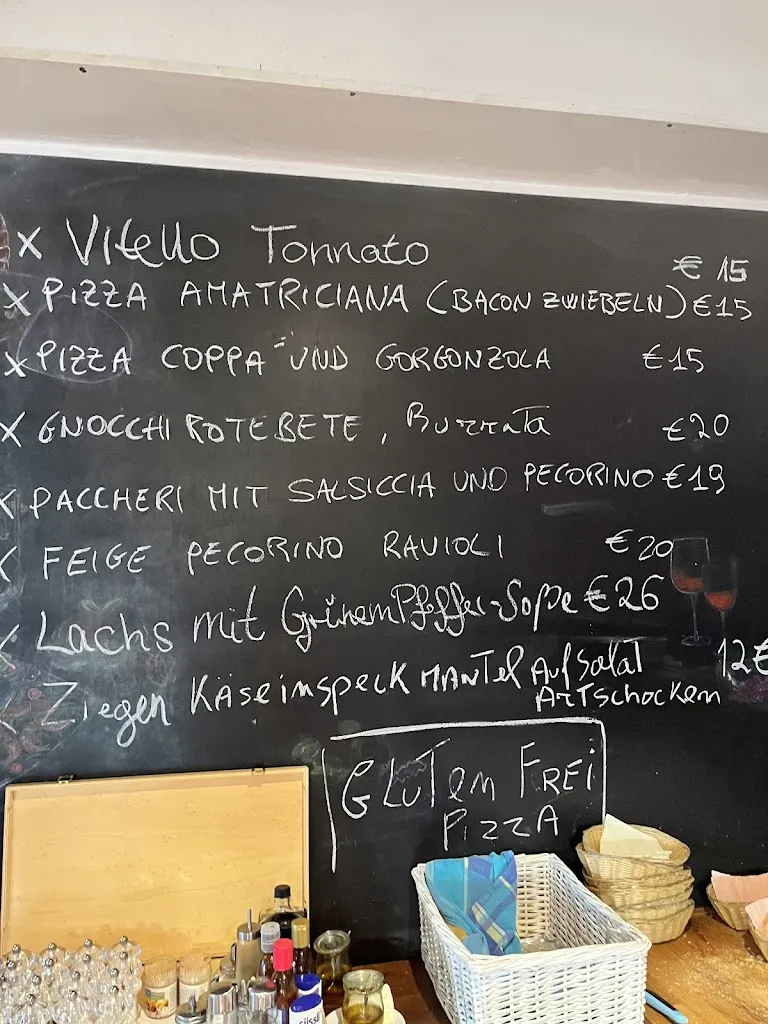 x Vitello Tonnato € 15
x PIZZA AMATRICIANA (BACON ZWIEBELN) €15
x PIZZA COPPA UND GORGONZOLA €15
x GNOCCHI ROTEBETE, BURRATA €20
x PACCHERI MIT SALSICCIA UND PECORINO €19
x FEIGE PECORINO RAVIOLI €20
x Lachs mit GrünemPfeffer-Soße €26
x Ziegen Käseinspeck MANTel Auf Salat 12€
ArTschocken
GLuTen FREi
PiZZA